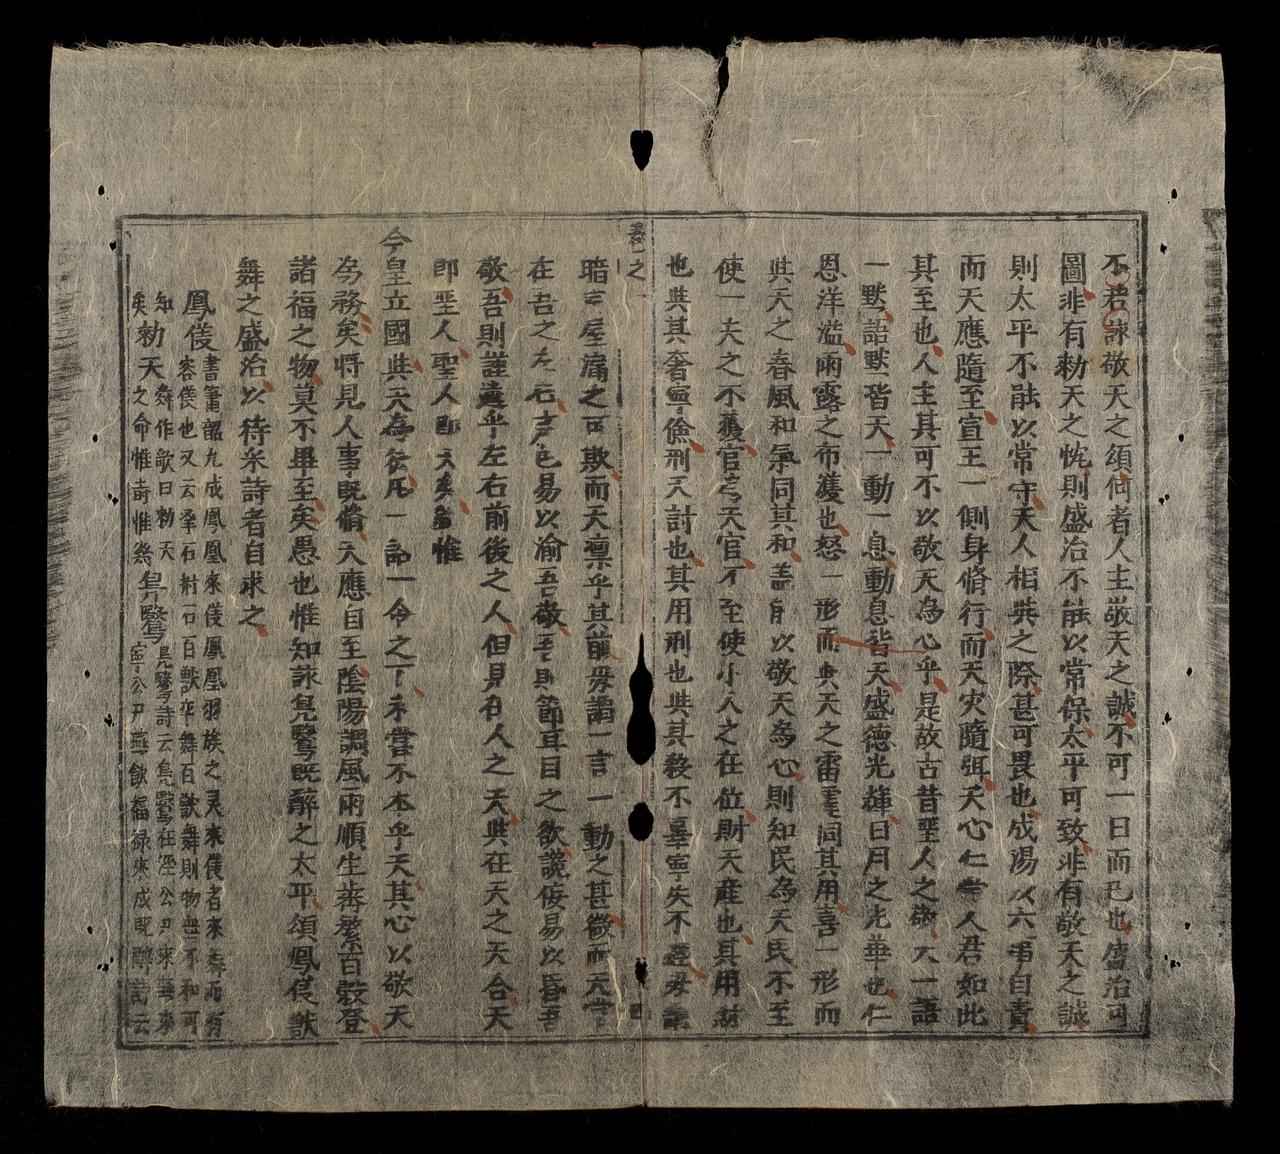 不若詠敬天之頌何者人主敬天之誠不可一日而已也盛治可
圖非有勑天之忱則盛治不能以常保太平可致非有敬天之誠
則太平不能以常守天人相與之際甚可畏也成湯以六事自責
而天應隨至宣王一側身脩行而天灾隨弭天心仁 人君如此
其至也人主其可不以敬天為心乎是故古昔聖人之敬天一語
一默語默皆天一動一息動息皆天盛德光輝日月之光華也仁
恩洋溢雨露之布濩也怒一形而與天之雷霆同其用喜一形而
與天之春風和氣同其和盖能以敬天為心則知民為天民不至
使一夫之不獲官 天官不至使小人之在位財天産也其用財
也與其奢寧儉刑天討也其用刑也與其殺不辜寧失不經毋謂
卷之
暗室屋漏之可欺而天凛乎其前毋謂一言一動之甚微而天常
在吾之左右声色易以渝吾敬吾則節耳目之欲讒佞易以昏吾
敬吾則謹違乎左右前後之人但見在人之天與在天之天合天
即聖人聖人即天矣 惟
今皇立國與天為徒凡一詔一令之下未嘗不本乎天其心以敬天
為務矣将見人事既脩天應自至陰陽調風雨順生養繁百穀登
諸福之物莫不畢至矣愚也惟知詠鳧鷖既醉之太平頌鳳儀獣
舞之盛治以待釆詩者自求之
鳳儀書簫韶九成鳳凰來儀鳳凰羽族之灵來儀者來舞而有
容儀也又云擊石拊石百獣率舞百獣舞則物無不和可
知 勑天舜作歌曰勑天
矣 之命惟時惟幾 鳧鷖鳧鷖詩云鳧鷖在涇公尸來
寧公尸燕飲福禄來成既醉詩云